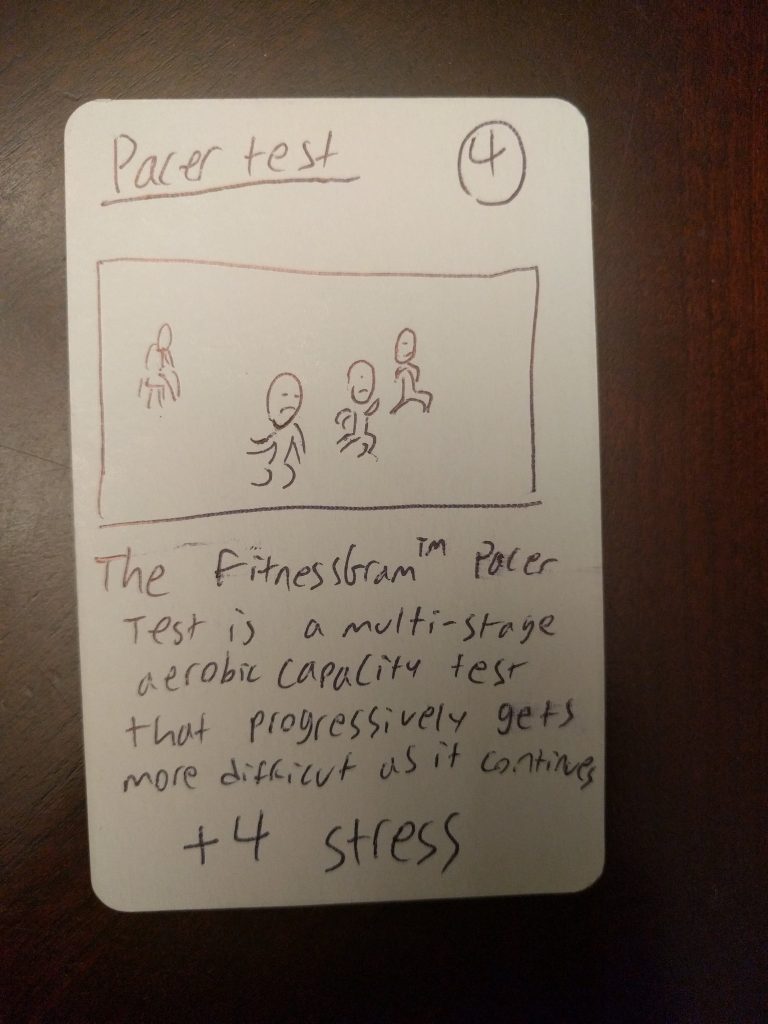 Pacer test 4
The FitnessGram™ Pacer
Test is a multi-stage
aerobic capacity test
that progressively gets
more difficut as it continues
+4 stress